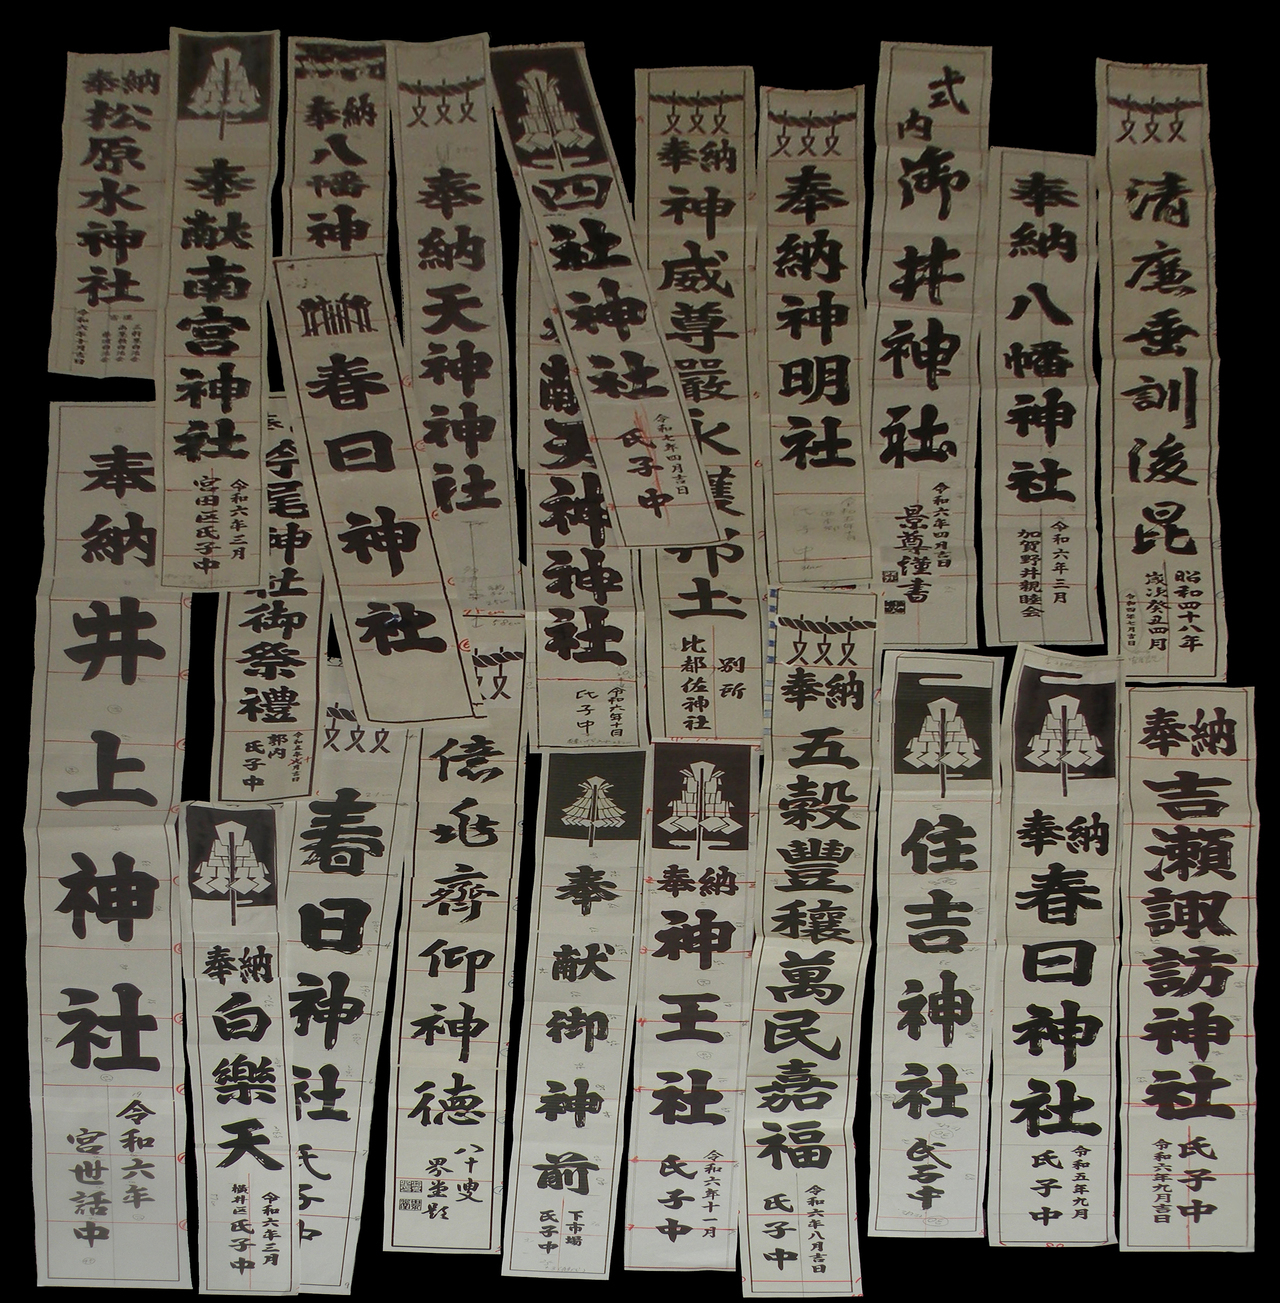 奉納
松原水神社
令和六年十月吉日
奉献南宮神社
令和六年三月
宮田区氏子中
奉納
八幡神
奉納天神神社
四社神社
令和七年四月吉日
氏子中
奉納
神威尊嚴永護邦土
別所
比都佐神社
奉納神明社
式内
御井神社
令和六年四月吉日
景尊謹書
奉納八幡神社
令和六年三月
加賀野井親睦会
清廉垂訓後昆
昭和四十八年
歳次癸丑四月
令和四年七月吉日
春日神社
奉納井上神社
令和六年
宮世話中
尾神社御祭禮
郭内
氏子中
献天神神社
令和六年十月
氏子中
奉納
白樂天
令和六年三月
横井区氏子中
春日神社
氏子中
億兆齊仰神德
八十叟
界堂題
奉献御神前
下市場
氏子中
奉納
神王社
令和六年十一月
氏子中
奉納
五穀豐穰萬民嘉福
令和六年八月吉日
氏子中
住吉神社
氏子中
奉納
春日神社
令和五年九月
氏子中
奉納
吉瀬諏訪神社
氏子中
令和六年九月吉日